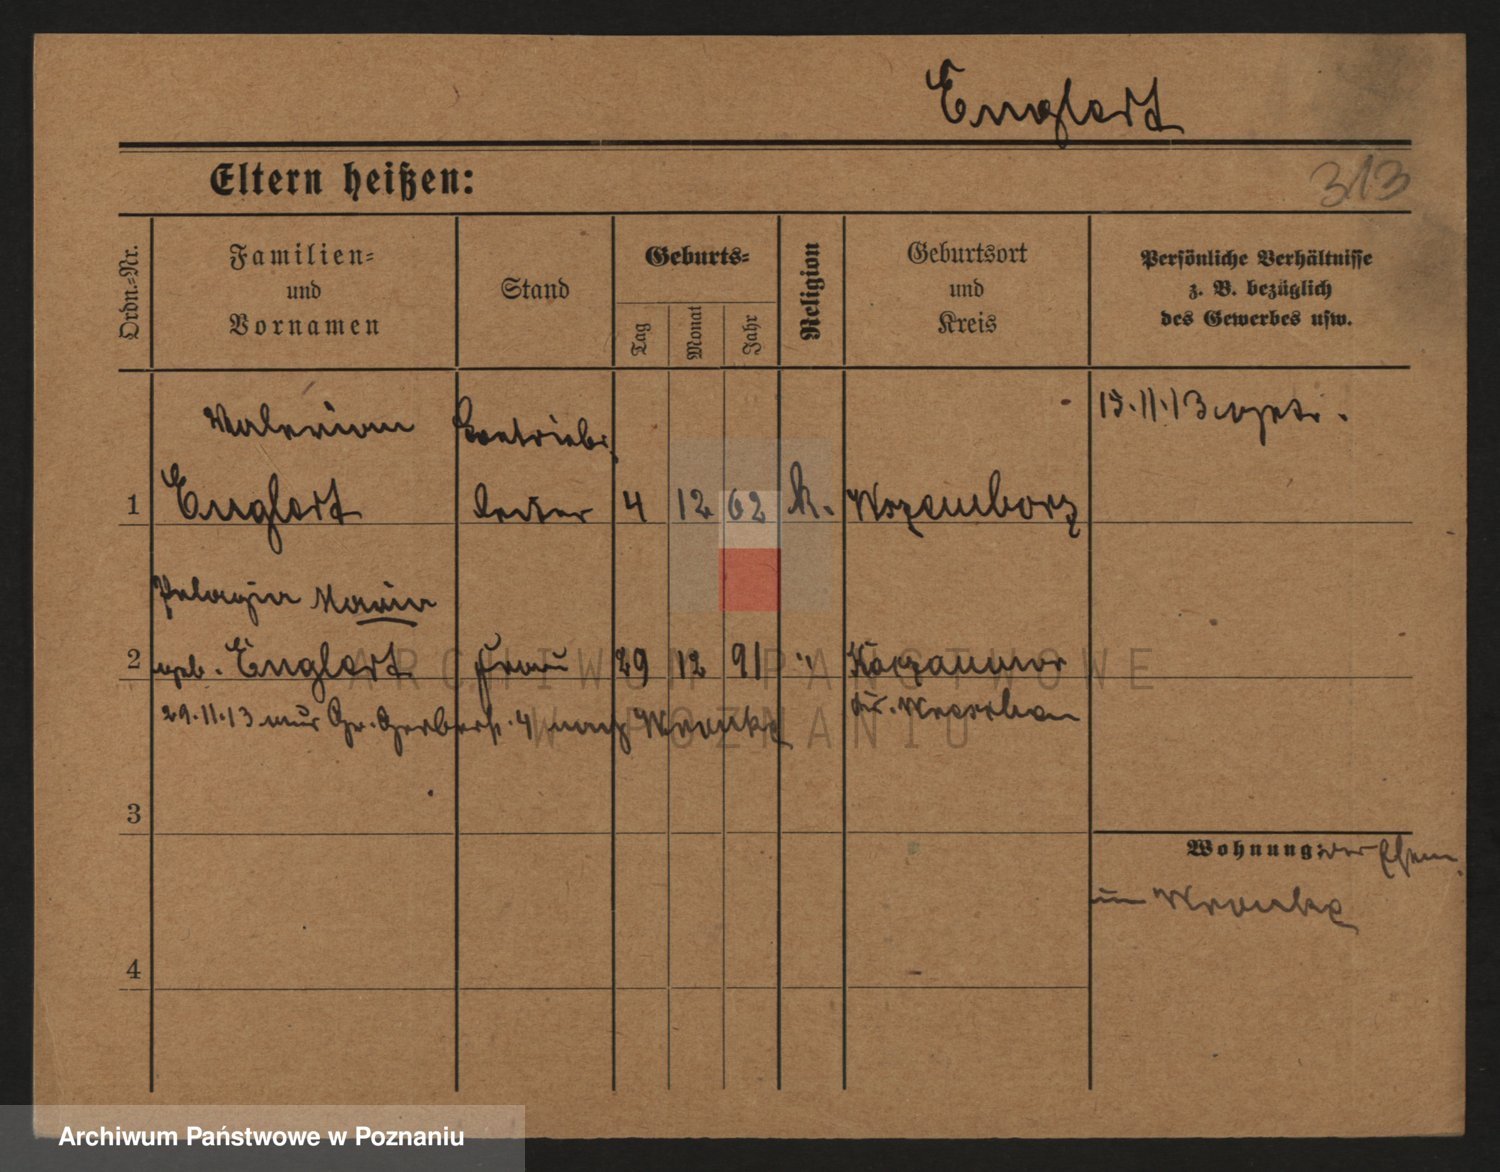 Englert
Eltern heißen:
313
Ordn.=Nr.
Familien=
und
Vornamen
Stand
Geburts=
Tag
Monat
Jahr
Religion
Geburtsort
und
Kreis
Persönliche Verhältnisse
z. B. bezüglich
des Gewerbes usw.
Valerian
15.11.13
1 Englert 4 12 62 k.
Pelagia Maria
2 geb. Englert Frau 29 12 91 "
29.11.13 Gr. Gerberstr. 4 nach Wronke
3
Wohnung: der Ehem.
in Wronke
4
ARCHIWUM PAŃSTWOWE
W POZNANIU
Archiwum Państwowe w Poznaniu